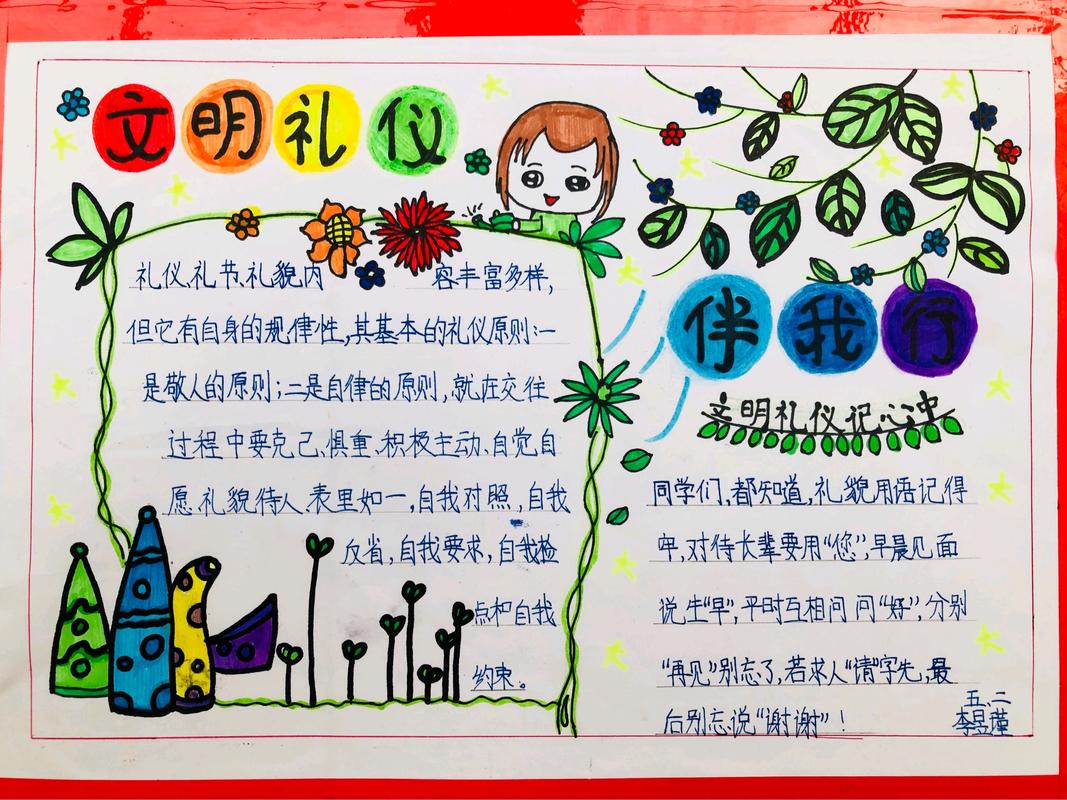 文明礼仪
礼仪、礼节、礼貌内容丰富多样,
但它有自身的规律性,其基本的礼仪原则:一
是敬人的原则;二是自律的原则,就在交往
过程中要克己、慎重、积极主动、自觉自
愿、礼貌待人、表里如一,自我对照,自我
反省,自我要求,自我检
点和自我
约束。
伴我行
文明礼仪记心中
同学们,都知道,礼貌用语记得
牢,对待长辈要用“您”,早晨见面
说生“早”,平时互相问问“好”,分别
“再见”别忘了,若求人“请”字先,最
后别忘说“谢谢”!
五、二
李昱瑾